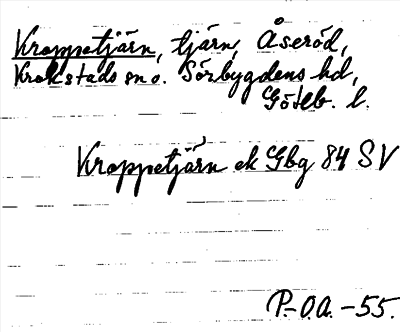 Kroppetjärn, tjärn, Åseröd,
Krokstads sn o. Sörbygdens hd,
Göteb. l.
Kroppetjärn ek Gbg 84 SV
P.-O.A. -55.